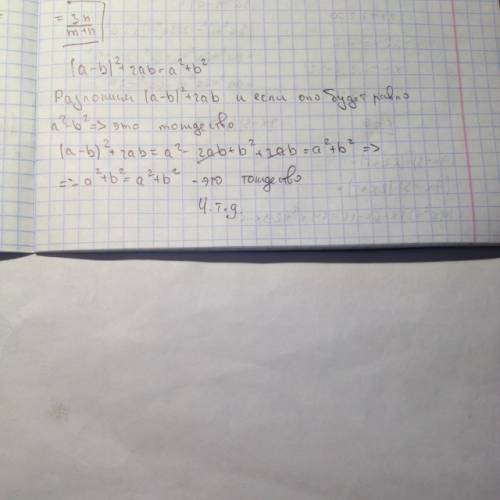 = 3n/(m+n)
(a-b)²+2ab=a²+b²
Разложим (a-b)²+2ab и если оно будет равно
a²+b² => это тождество
(a-b)²+2ab = a²-2ab+b²+2ab = a²+b² =>
=> a²+b² = a²+b² - это тождество
Ч.т.д.